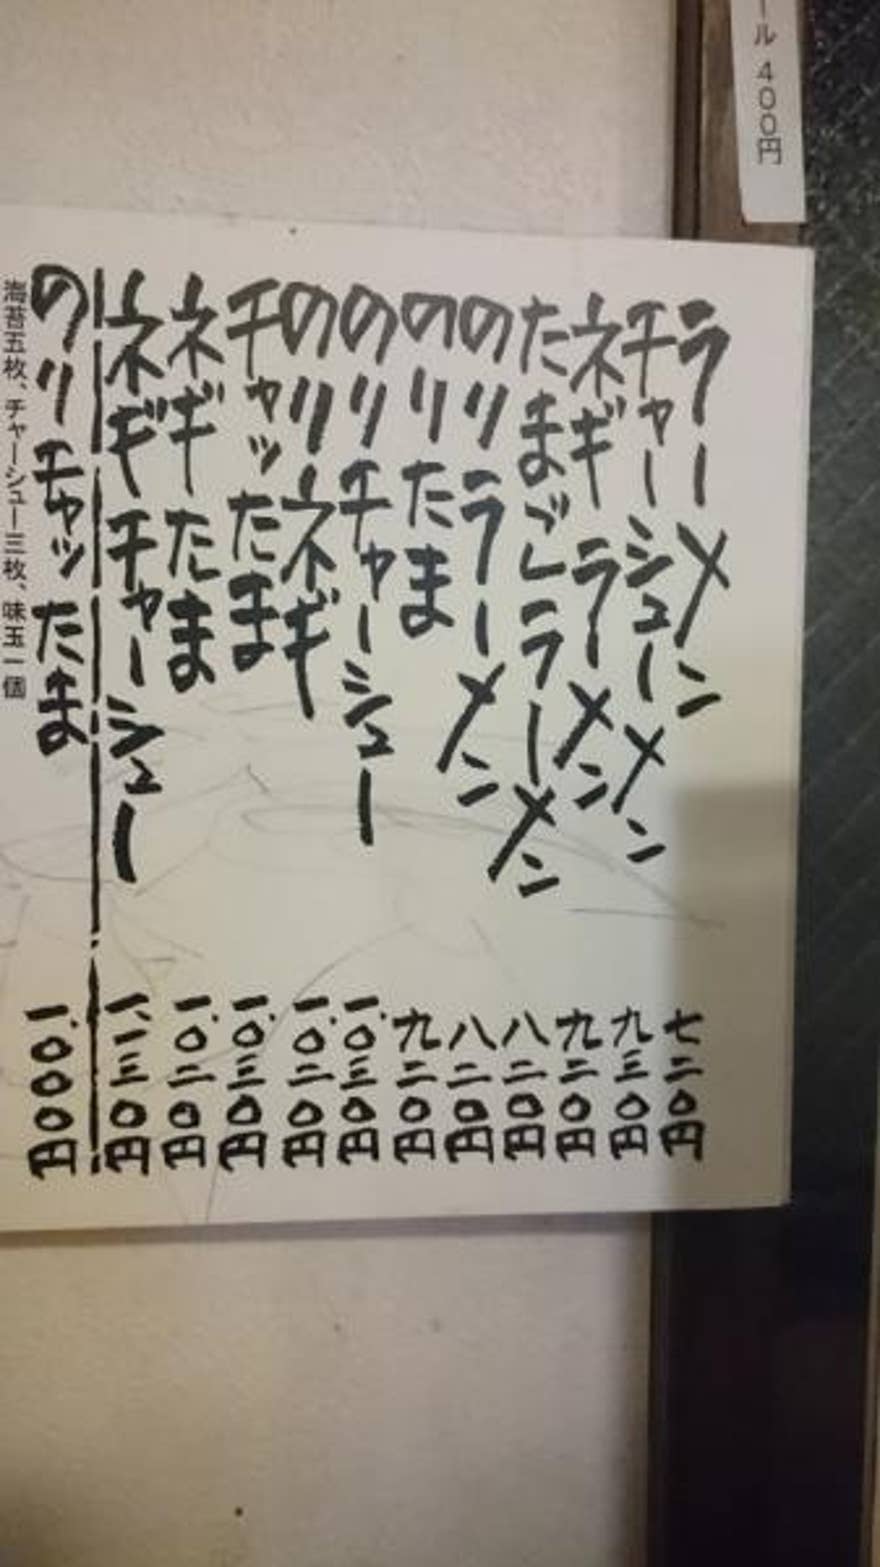 ール 400円
ラーメン 七二〇円
チャーシューメン 九三〇円
ネギラーメン 九二〇円
たまごラーメン 八二〇円
のりラーメン 八二〇円
のりたま 九二〇円
のりチャーシュー 一、〇三〇円
のりネギ 一、〇二〇円
チャッたま 一、〇三〇円
ネギたま 一、〇二〇円
ネギチャーシュー 一、一三〇円
のりチャッたま 一、〇〇〇円
海苔五枚、チャーシュー三枚、味玉一個